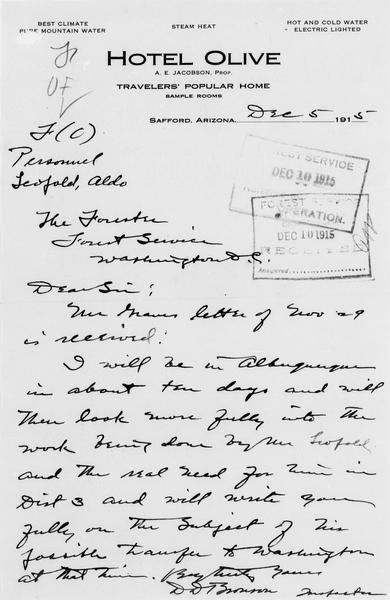 BEST CLIMATE
PURE MOUNTAIN WATER
STEAM HEAT
HOT AND COLD WATER
ELECTRIC LIGHTED
HOTEL OLIVE
A. E. JACOBSON, PROP.
TRAVELERS' POPULAR HOME
SAMPLE ROOMS
SAFFORD, ARIZONA, Dec 5 1915
OF
F (C)
Personnel
Leopold, Aldo
FOREST SERVICE
DEC 10 1915
FOREST SERVICE
OPERATION.
DEC 10 1915
RECEIVED
Answered
The Forester
Forest Service
Washington D.C.
Dear Sir:
Mr Graves letter of Nov 29
is received.
I will be in Albuquerque
in about ten days and will
then look more fully into the
work being done by Mr Leopold
and the real need for him in
Dist 3 and will write you
fully on the subject of his
possible transfer to Washington
at that time. Very truly yours
D D Bronson Inspector